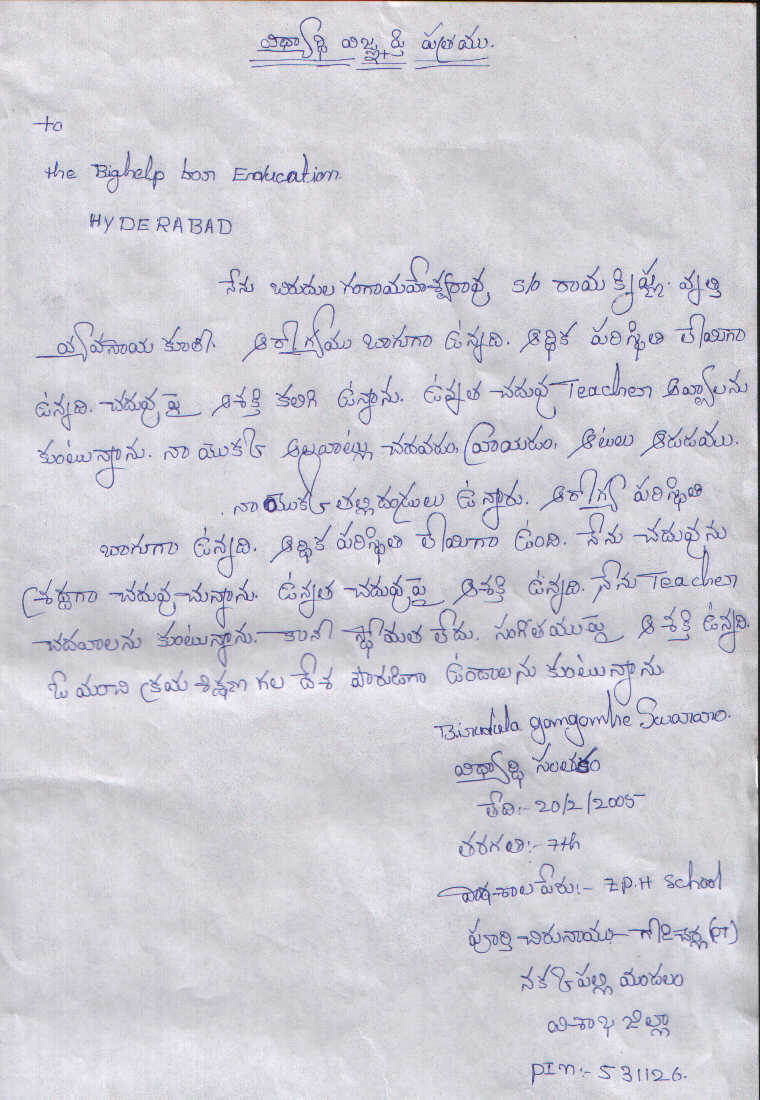 విద్యార్థి విజ్ఞప్తి పత్రము.
to
the Bighelp for Education.
HYDERABAD
నేను బిరుదుల గంగామహేశ్వరరావు s/o రామ క్రిష్ణ. వృత్తి
వ్యవసాయ కూలి. ఆరోగ్యము బాగుగా ఉన్నది. ఆర్థిక పరిస్థితి లేమిగా
ఉన్నది. చదువు పై ఆశక్తి కలిగి ఉన్నాను. ఉన్నత చదువు Teacher అవ్వాలను
కుంటున్నాను. నా యొక్క అలవాట్లు చదవడం, వ్రాయడం, ఆటలు ఆడుడము.
నా యొక్క తల్లిదండ్రులు ఉన్నారు. ఆరోగ్య పరిస్థితి
బాగుగా ఉన్నది. ఆర్థిక పరిస్థితి లేమిగా ఉంది. నేను చదువును
శ్రద్దగా చదువుచున్నాను. ఉన్నత చదువుపై ఆశక్తి ఉన్నది. నేను Teacher
చదవాలను కుంటున్నాను. కాని స్థోమత లేదు. సంగీతముపై ఆశక్తి ఉన్నది.
ఓ మంచి క్రమశిక్షణ గల దేశ పౌరుడిగా ఉండాలను కుంటున్నాను
Birudula
విద్యార్థి సంతకం
తేది:- 20/2/2005
తరగతి:- 7th
పాఠశాల పేరు:- Z.P.H School
పూర్తి చిరునామ:-
నక్కపల్లి మండలం
విశాఖ జిల్లా
PIN:- 531126.